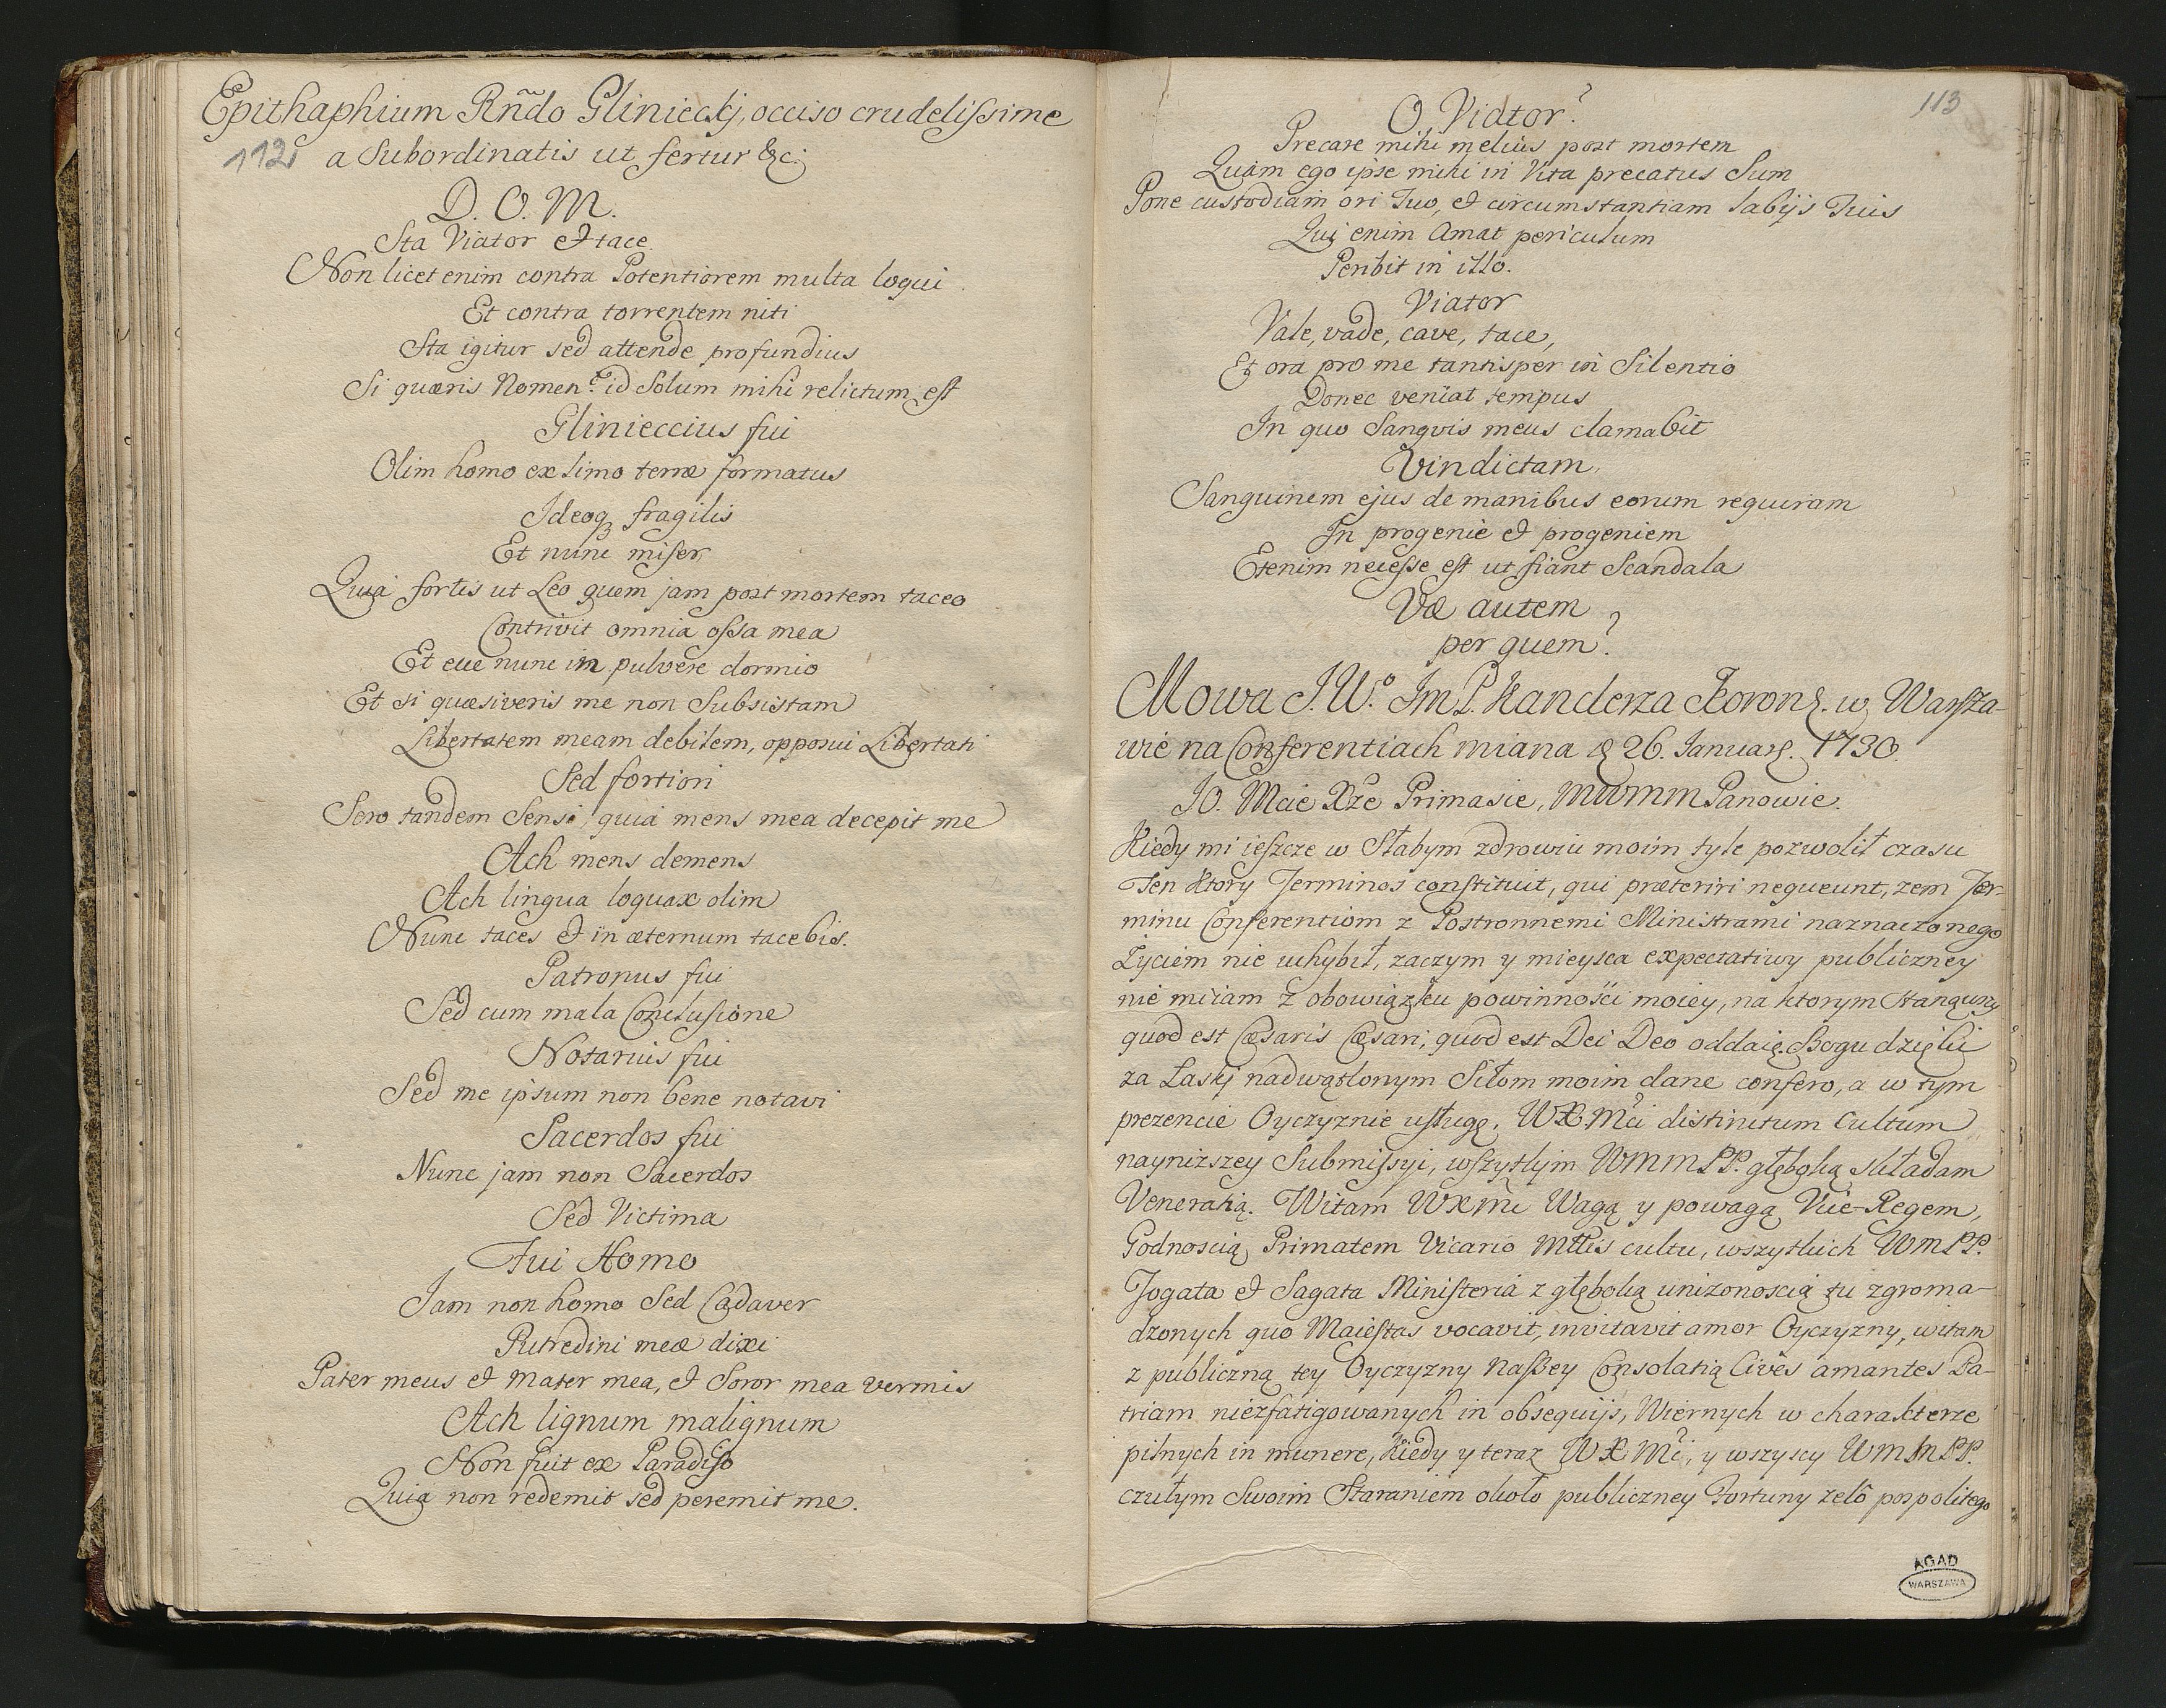 Epithaphium Rñdo Glinieckj, occiso crudelissime
112 a Subordinatis ut fertur &c:
D. O. M.
Sta Viator et tace.
Non licet enim contra Potentiorem multa loqui
Et contra torrentem niti
Sta igitur sed attende profundius
Si quæris Nomen? id Solum mihi relictum est
Glinieccius fui
Olim homo ex limo terræ formatus
Ideoq fragilis
Et nunc miser
Quia fortis ut Leo quem jam post mortem taceo
Contrivit omnia ossa mea
Et ecce nunc in pulvere dormio
Et si quæsiveris me non Subsistam
Libertatem meam debilem, opposui Libertati
Sed fortiori
Sero tandem Sensi, quia mens mea decepit me
Ach mens demens
Ach lingua loquax olim
Nunc taces et in æternum tacebis.
Patronus fui
Sed cum mala Conclusione
Notarius fui
Sed me ipsum non bene notavi
Sacerdos fui
Nunc jam non Sacerdos
Sed Victima
Fui Homo
Jam non homo Sed Cadaver
Putredini meæ dixi
Pater meus et Mater mea, et Soror mea vermis
Ach lignum malignum
Non fuit ex Paradiso
Quia non redemit sed peremit me.
113
O Viator?
Precare mihi melius post mortem
Quam ego ipse mihi in Vita precatus Sum
Pone custodiam ori Tuo, et circumstantiam labijs Tuis
Qui enim Amat periculum
Peribit in illo.
Viator
Vale, vade, cave, tace,
Et ora pro me tantisper in Silentio
Donec veniat tempus
In quo Sangvis meus clamabit
Vindictam.
Sanguinem ejus de manibus eorum requiram
In progenie et progeniem
Etenim necesse est ut fiant Scandala
Væ autem
per quem?
Mowa J.W.º Im P. Kanclerza Koron. w Warsza-
wie na Conferentiach miana d 26. Januar. 1730.
JO. Mcie Xże Primasie, MWMM Panowie.
Kiedy mi ieszcze w Słabym zdrowiu moim tyle pozwolił czasu
Ten ktory Terminos constituit, qui præteriri nequeunt, zem Ter-
minu Conferentiom z Postronnemi Ministrami naznaczonego
Zyciem nie uchybił, zaczym y mieysca expectatiwy publiczney
nie miiam z obowiązku powinności moiey, na ktorym Stanąwszy
quod est Cæsaris Cæsari, quod est Dei Deo oddaię. Bogu dzięki
za Łaskj nadwątlonym Siłom moim dane confero, a w tym
prezencie Oyczyznie usługę. WX Mci distinctum Cultum
naynizszey Submissyi, wszytkim WMMPP. głęboką składam
Veneratią. Witam WXMci Wagą y powagą Vice-Regem,
Godnoscią Primatem Vicario Mttis cultu, wszytkich WMPP.
Togata et Sagata Ministeria z głęboką unizonoscią tu zgroma-
dzonych quo Maiestas vocavit, invitavit amor Oyczyzny, witam
z publiczną tey Oyczyzny Naszey Consolatią Cives amantes Pa-
triam niezfatigowanych in obsequijs, Wiernych w charakterze
pilnych in munere, Kiedy y teraz WX Mć, y wszyscy WMMPP.
czułym Swoim Staraniem około publiczney Fortuny zelô pospolitego
AGAD
WARSZAWA